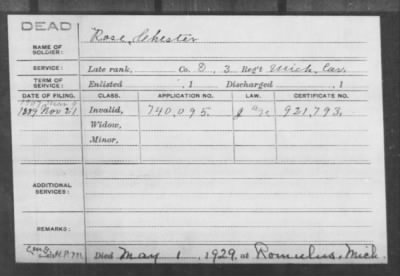 DEAD
NAME OF SOLDIER: Rose, Chester
SERVICE: Late rank, Co. D, 3 Reg't Mich. Cav.
TERM OF SERVICE: Enlisted , 1 Discharged , 1
DATE OF FILING. CLASS. APPLICATION NO. LAW. CERTIFICATE NO.
1889 Nov 21 Invalid, 740,095. 921,793.
Widow,
Minor,
ADDITIONAL SERVICES:
REMARKS:
Died May 1, 1929, at Romulus, Mich.